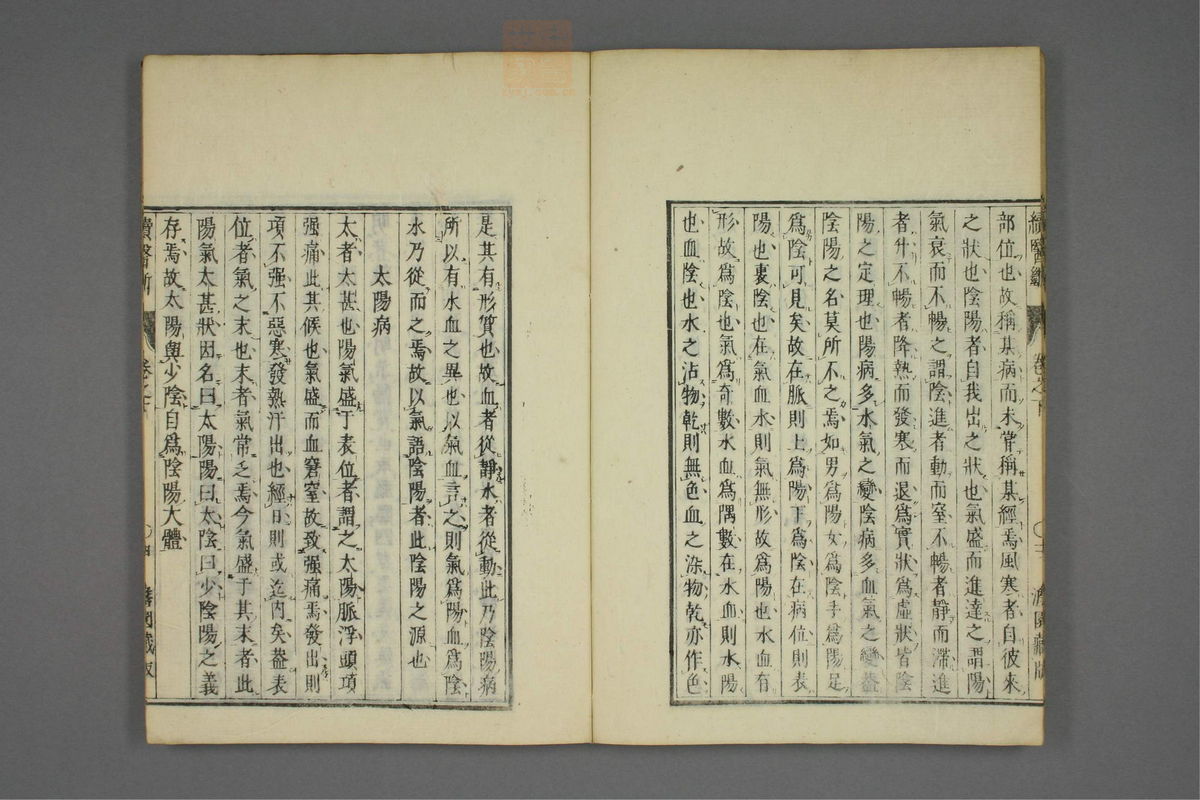 部位也故稱某病而未嘗稱某經焉風寒者自彼來
之狀也陰陽者自我出之狀也氣盛而進達之謂陽
氣衰而不暢之謂陰進者動而窒不暢者靜而滯進
者升不暢者降熱而發寒而退爲實狀爲虛狀皆陰
陽之定理也陽病多水氣之變陰病多血氣之變蓋
陰陽之名莫所不之焉如男爲陽女爲陰手爲陽足
爲陰可見矣故在脈則上爲陽下爲陰在病位則表
陽也裏陰也在氣血水則氣無形故爲陽也水血有
形故爲陰也氣爲奇數水血爲隅數在水血則水陽
也血陰也水之沾物乾則無色血之染物乾亦作色
是其有形質也故血者從靜水者從動此乃陰陽病
所以有水血之異也以氣血言之則氣爲陽血爲陰
水乃從而之焉故以氣語陰陽者此陰陽之源也
太陽病
太者太甚也陽氣盛于表位者謂之太陽脈浮頭項
强痛此其候也氣盛而血窘窒故致强痛焉發出則
項不强不惡寒發熱汗出也經日則或迄内矣蓋表
位者氣之末也末者氣常乏焉今氣盛于其末者此
陽氣太甚狀因名曰太陽陽曰太陰曰少陰陽之義
存焉故太陽與少陰自爲陰陽大體
續醫斷
卷之下